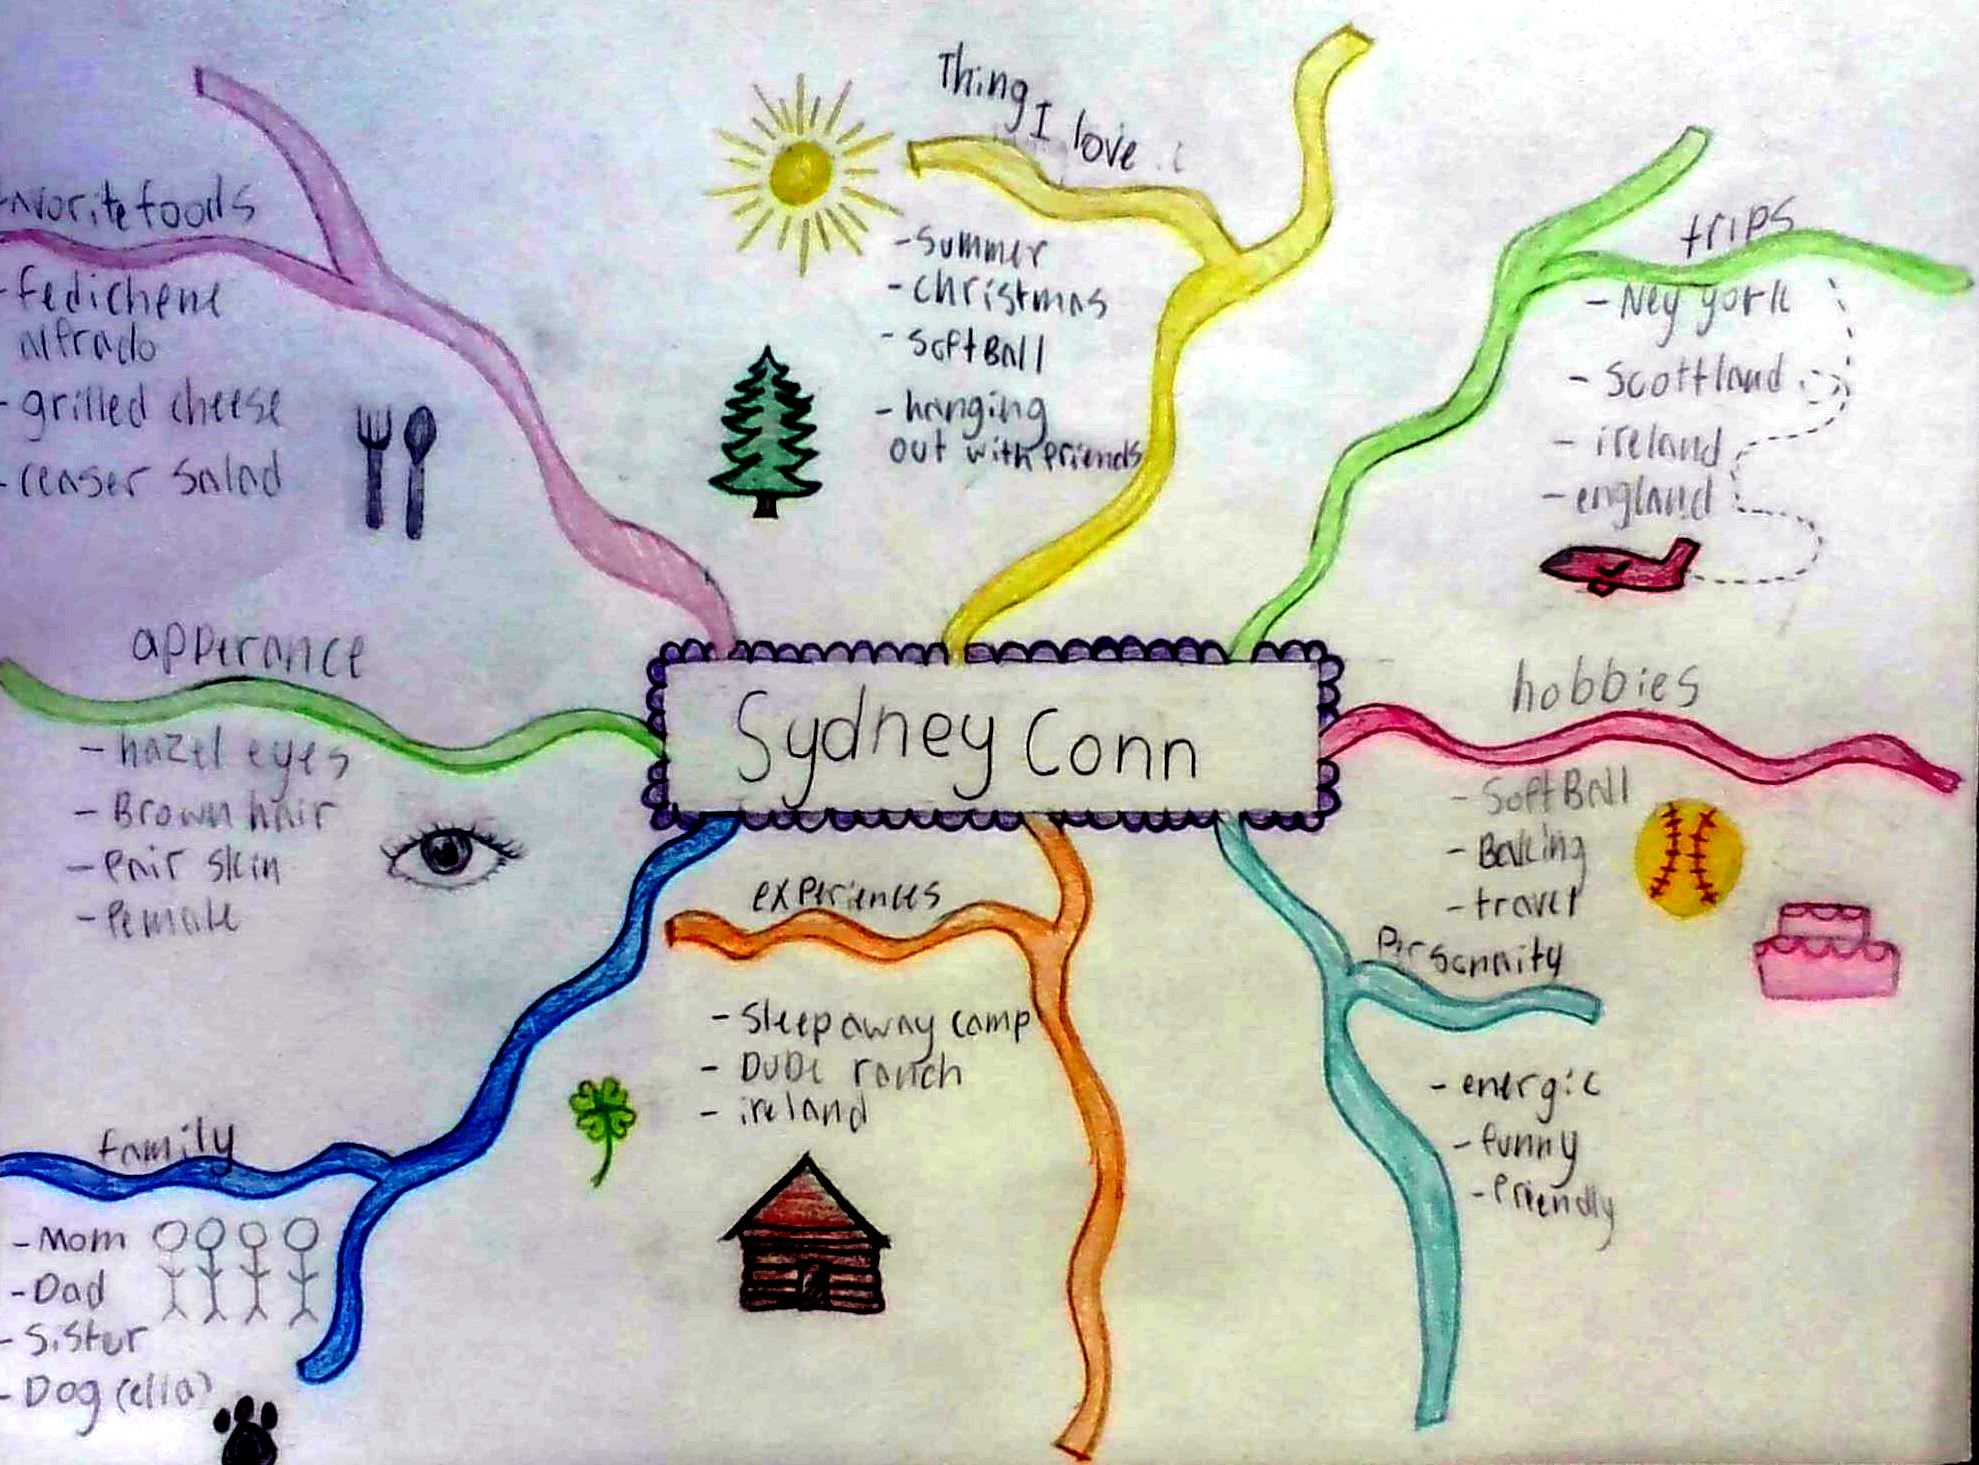 Thing I love
- Summer
- christmas
- softBall
- hanging
out with friends
favorite foods
- fedichene
alfrado
- grilled cheese
- ceaser salad
trips
- Ney york
- Scottland
- ireland
- england
apperance
- hazel eyes
- Brown hair
- fair skin
- female
Sydney Conn
hobbies
- SoftBall
- Baking
- travel
experiences
- Sleep away camp
- DuDe ranch
- ireland
Persannity
- energic
- funny
- friendly
family
- Mom
- Dad
- Sister
- Dog (ella)